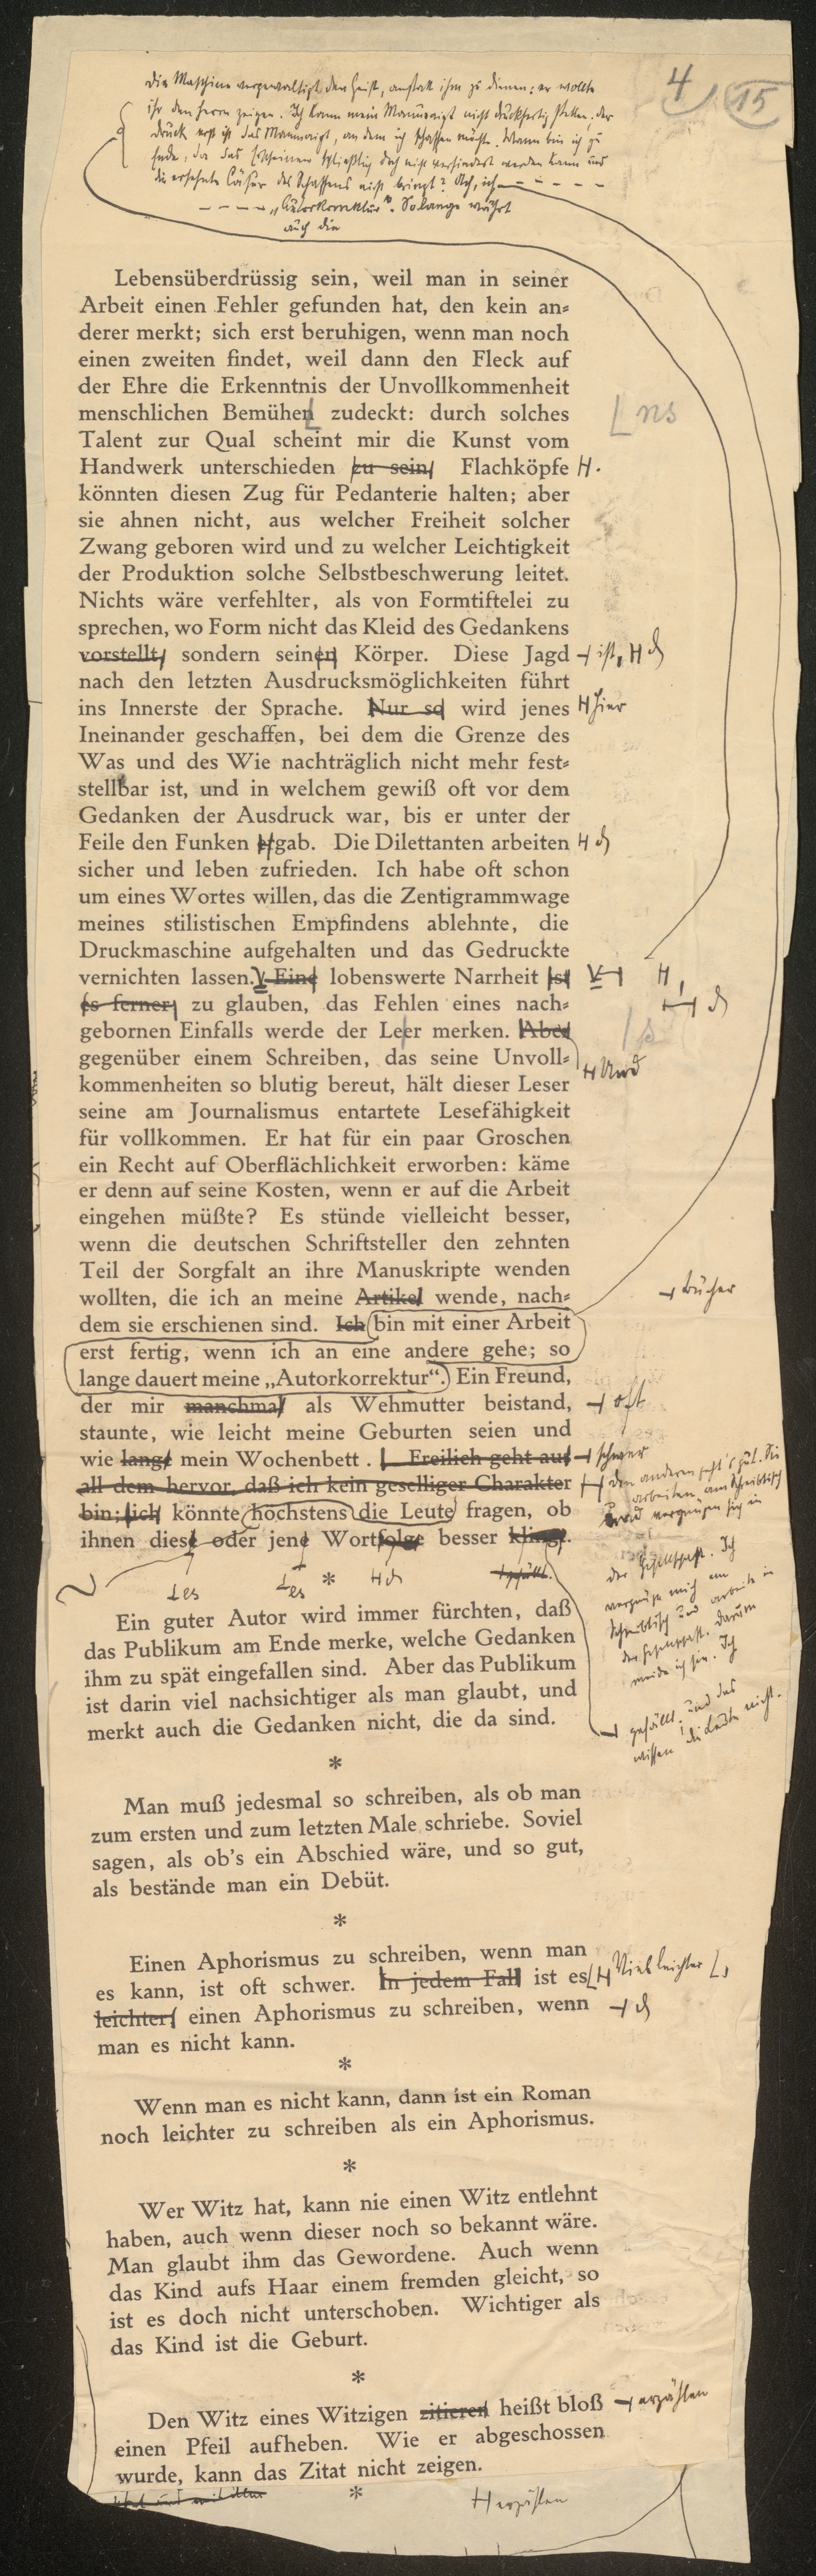 4 15
Die Maschine vergewaltigt den Geist, anstatt ihm zu dienen: er wollte
ihr den Herrn zeigen. Ich kann mein Manuskript nicht druckfertig stellen. Der
Druck erst ist das Manuskript, an dem ich schaffen möchte. Wann bin ich zu
Ende, da das Erscheinen schließlich doch nicht verhindert werden kann und
die ersehnte Cäsur des Schaffens nicht bringt? Ach, ich – – – – –
– – – – „Autorkorrektur“. Solange währt
auch die
Lebensüberdrüssig sein, weil man in seiner
Arbeit einen Fehler gefunden hat, den kein an-
derer merkt; sich erst beruhigen, wenn man noch
einen zweiten findet, weil dann den Fleck auf
der Ehre die Erkenntnis der Unvollkommenheit
menschlichen Bemühen zudeckt: durch solches ns
Talent zur Qual scheint mir die Kunst vom
Handwerk unterschieden zu sein. Flachköpfe .
könnten diesen Zug für Pedanterie halten; aber
sie ahnen nicht, aus welcher Freiheit solcher
Zwang geboren wird und zu welcher Leichtigkeit
der Produktion solche Selbstbeschwerung leitet.
Nichts wäre verfehlter, als von Formtiftelei zu
sprechen, wo Form nicht das Kleid des Gedankens
vorstellt, sondern seinen Körper. Diese Jagd ist,
nach den letzten Ausdrucksmöglichkeiten führt
ins Innerste der Sprache. Nur so wird jenes Hier
Ineinander geschaffen, bei dem die Grenze des
Was und des Wie nachträglich nicht mehr fest-
stellbar ist, und in welchem gewiß oft vor dem
Gedanken der Ausdruck war, bis er unter der
Feile den Funken gab. Die Dilettanten arbeiten
sicher und leben zufrieden. Ich habe oft schon
um eines Wortes willen, das die Zentigrammwage
meines stilistischen Empfindens ablehnte, die
Druckmaschine aufgehalten und das Gedruckte
vernichten lassen. Eine lobenswerte Narrheit ist
es ferner, zu glauben, das Fehlen eines nach-
gebornen Einfalls werde der Leer merken. Aber s
gegenüber einem Schreiben, das seine Unvoll-
kommenheiten so blutig bereut, hält dieser Leser Und
seine am Journalismus entartete Lesefähigkeit
für vollkommen. Er hat für ein paar Groschen
ein Recht auf Oberflächlichkeit erworben: käme
er denn auf seine Kosten, wenn er auf die Arbeit
eingehen müßte? Es stünde vielleicht besser,
wenn die deutschen Schriftsteller den zehnten
Teil der Sorgfalt an ihre Manuskripte wenden
wollten, die ich an meine Artikel wende, nach- Bücher
dem sie erschienen sind. Ich bin mit einer Arbeit
erst fertig, wenn ich an eine andere gehe; so
lange dauert meine „Autorkorrektur“. Ein Freund,
der mir manchmal als Wehmutter beistand, oft
staunte, wie leicht meine Geburten seien und
wie lang mein Wochenbett. Freilich geht aus schwer
all dem hervor, daß ich kein geselliger Charakter
bin; ich könnte höchstens die Leute fragen, ob
ihnen diese oder jene Wortfolge besser klingt.
Den anderen geht's gut. Sie
arbeiten am Schreibtisch
und vergnügen sich in
der Gesellschaft. Ich
vergnüge mich am
Schreibtisch und arbeite in
der Gesellschaft. Darum
meide ich sie. Ich
es es
*
gefällt. und das
wissen die Leute nicht.
Ein guter Autor wird immer fürchten, daß
das Publikum am Ende merke, welche Gedanken
ihm zu spät eingefallen sind. Aber das Publikum
ist darin viel nachsichtiger als man glaubt, und
merkt auch die Gedanken nicht, die da sind.
*
Man muß jedesmal so schreiben, als ob man
zum ersten und zum letzten Male schriebe. Soviel
sagen, als ob's ein Abschied wäre, und so gut,
als bestände man ein Debüt.
*
Einen Aphorismus zu schreiben, wenn man
es kann, ist oft schwer. In jedem Fall ist es Viel leichter ,
leichter, einen Aphorismus zu schreiben, wenn
man es nicht kann.
*
Wenn man es nicht kann, dann ist ein Roman
noch leichter zu schreiben als ein Aphorismus.
*
Wer Witz hat, kann nie einen Witz entlehnt
haben, auch wenn dieser noch so bekannt wäre.
Man glaubt ihm das Gewordene. Auch wenn
das Kind aufs Haar einem fremden gleicht, so
ist es doch nicht unterschoben. Wichtiger als
das Kind ist die Geburt.
*
Den Witz eines Witzigen zitieren heißt bloß erzählen
einen Pfeil aufheben. Wie er abgeschossen
wurde, kann das Zitat nicht zeigen.
*
erzählen